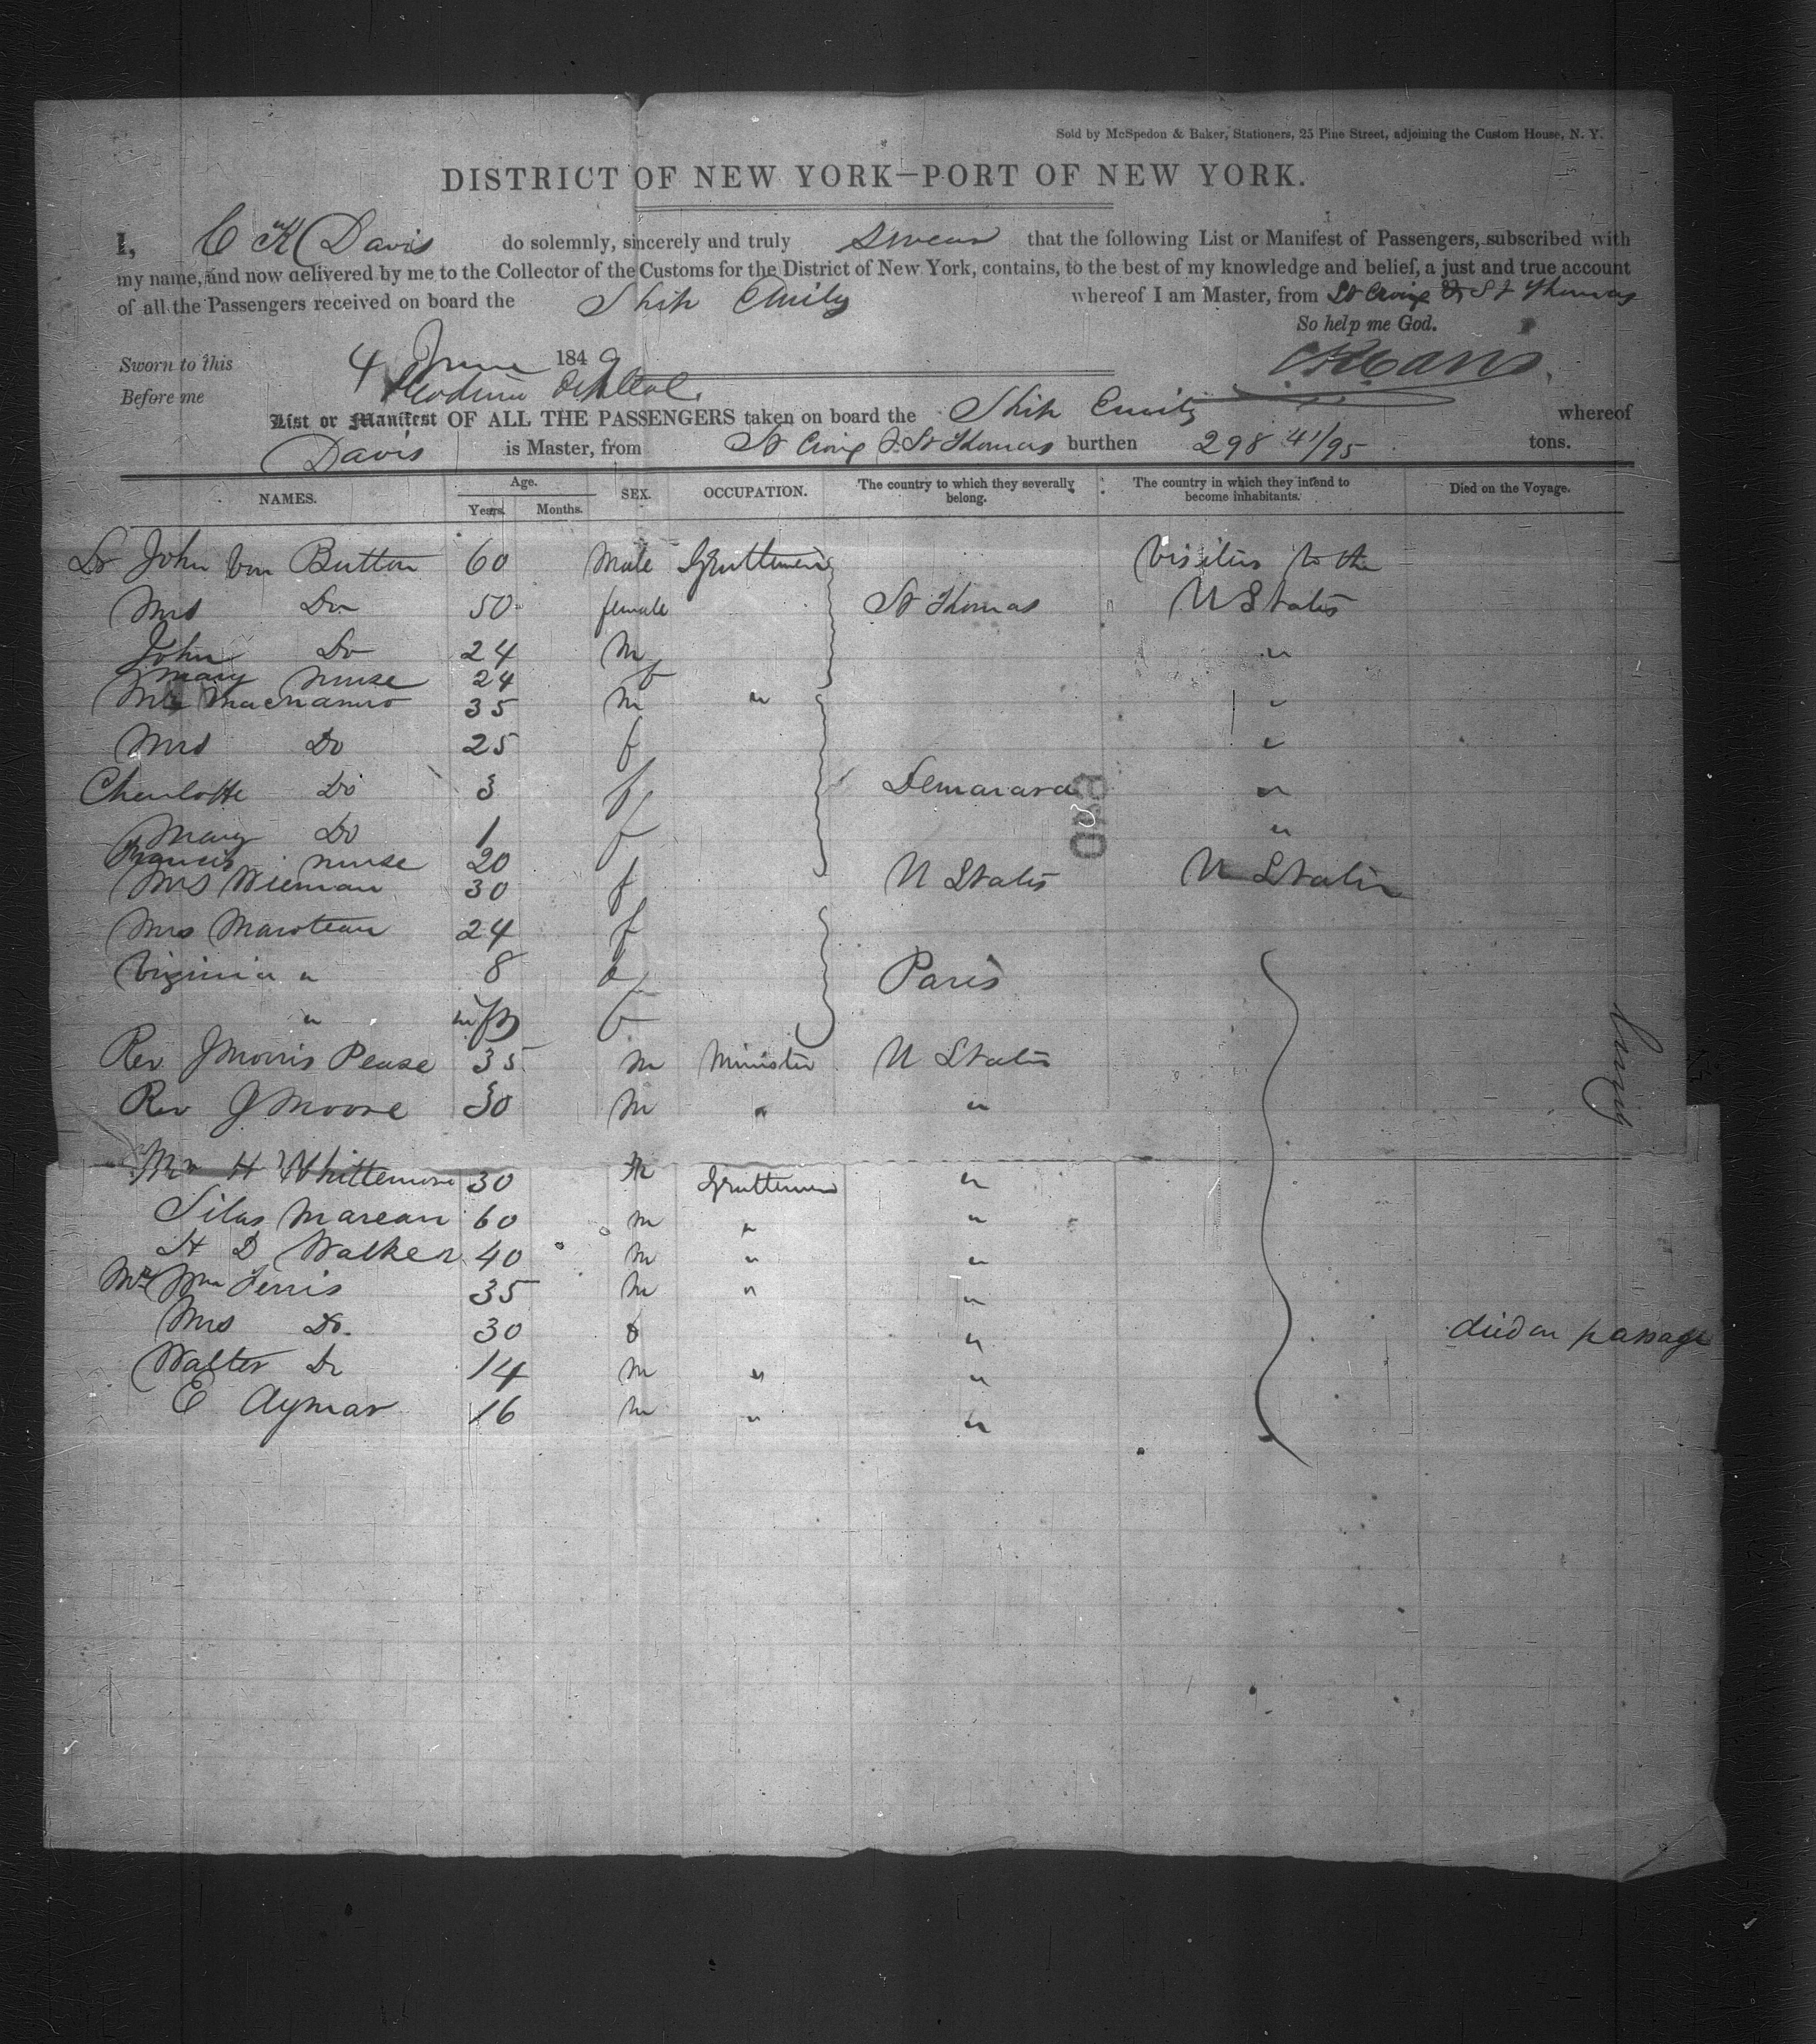 Sold by McSpedon & Baker, Stationers, 25 Pine Street, adjoining the Custom House, N. Y.
DISTRICT OF NEW YORK—PORT OF NEW YORK.
I, C K Davis do solemnly, sincerely and truly Swear that the following List or Manifest of Passengers, subscribed with
my name, and now delivered by me to the Collector of the Customs for the District of New York, contains, to the best of my knowledge and belief, a just and true account
of all the Passengers received on board the Ship Emily whereof I am Master, from St Croix & St Thomas
So help me God.
Sworn to this 4 June 1849 CK Davis
Before me
List or Manifest OF ALL THE PASSENGERS taken on board the Ship Emily whereof
Davis is Master, from St Croix & St Thomas burthen 298 41/95 tons.
NAMES. Age. Years. Months. SEX. OCCUPATION. The country to which they severally belong. The country in which they intend to become inhabitants. Died on the Voyage.
Dr John Von Button 60 Male Gentlemen Visitors to the
Mrs Do 50 female St Thomas U States
John Do 24 M "
Mary nurse 24 f
Mr MacNamro 35 M " "
Mrs Do 25 f "
Charlotte Do 3 f Demarara "
Mary Do 1 f "
Francis nurse 20
Mrs Wieman 30 f U States U States
Mrs Maroteau 24 f
Virginia " 8 f Paris
" inft f
Rev J Morris Pease 35 M Minister U States
Rev J Moore 30 M " "
Mr H Whittemore 30 M Gentlemen "
Silas Marean 60 M " "
H D Walker 40 M " "
Mr Wm Ferris 35 M " "
Mrs Do. 30 f " died on passage
Walter Do 14 M " "
E Aymar 16 M " "